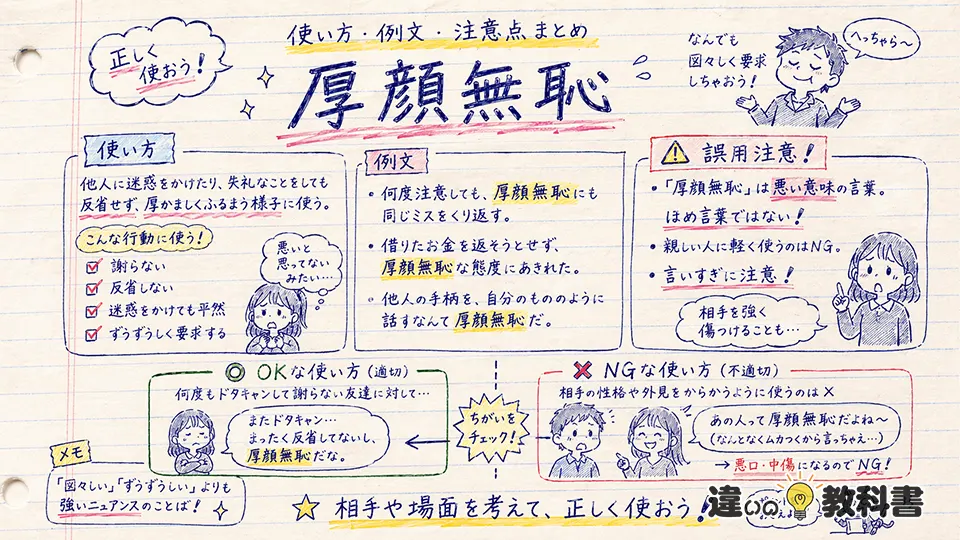 使い方・例文・注意点まとめ
正しく
使おう！
厚顔無恥
なんでも
図々しく要求
しちゃおう！
へっちゃら～
使い方
他人に迷惑をかけたり、失礼なことをしても
反省せず、厚かましくふるまう様子に使う。
こんな行動に使う！
謝らない
反省しない
迷惑をかけても平然
ずうずうしく要求する
悪いと
思ってない
みたい…
例文
・何度注意しても、厚顔無恥にも
同じミスをくり返す。
・借りたお金を返そうとせず、
厚顔無恥な態度にあきれた。
・他人の手柄を、自分のもののように
話すなんて厚顔無恥だ。
誤用注意！
・「厚顔無恥」は悪い意味の言葉。
ほめ言葉ではない！
・親しい人に軽く使うのはNG。
・言いすぎに注意！
相手を強く
傷つけることも…
◎ OKな使い方（適切）
何度もドタキャンして謝らない友達に対して…
またドタキャン…
まったく反省してないし、
厚顔無恥だな。
ちがいを
チェック！
× NGな使い方（不適切）
相手の性格や外見をからかうように使うのは×
あの人って厚顔無恥だよね～
（なんとなくムカつくから言っちゃえ…）
→悪口・中傷になるのでNG！
メモ
「図々しい」「ずうずうしい」よりも
強いニュアンスのことば！
☆ 相手や場面を考えて、正しく使おう！
違いの教科書